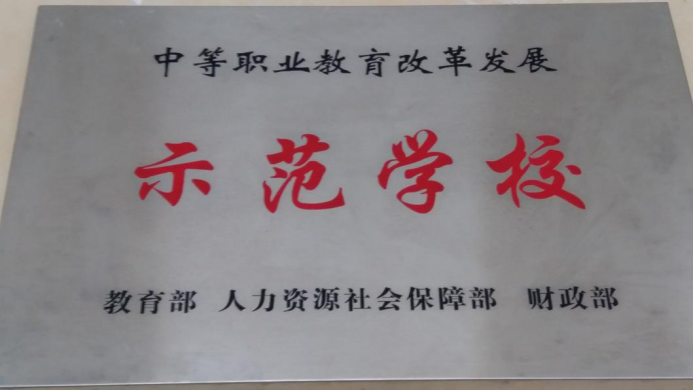 中等职业教育改革发展
示范学校
教育部 人力资源社会保障部 财政部